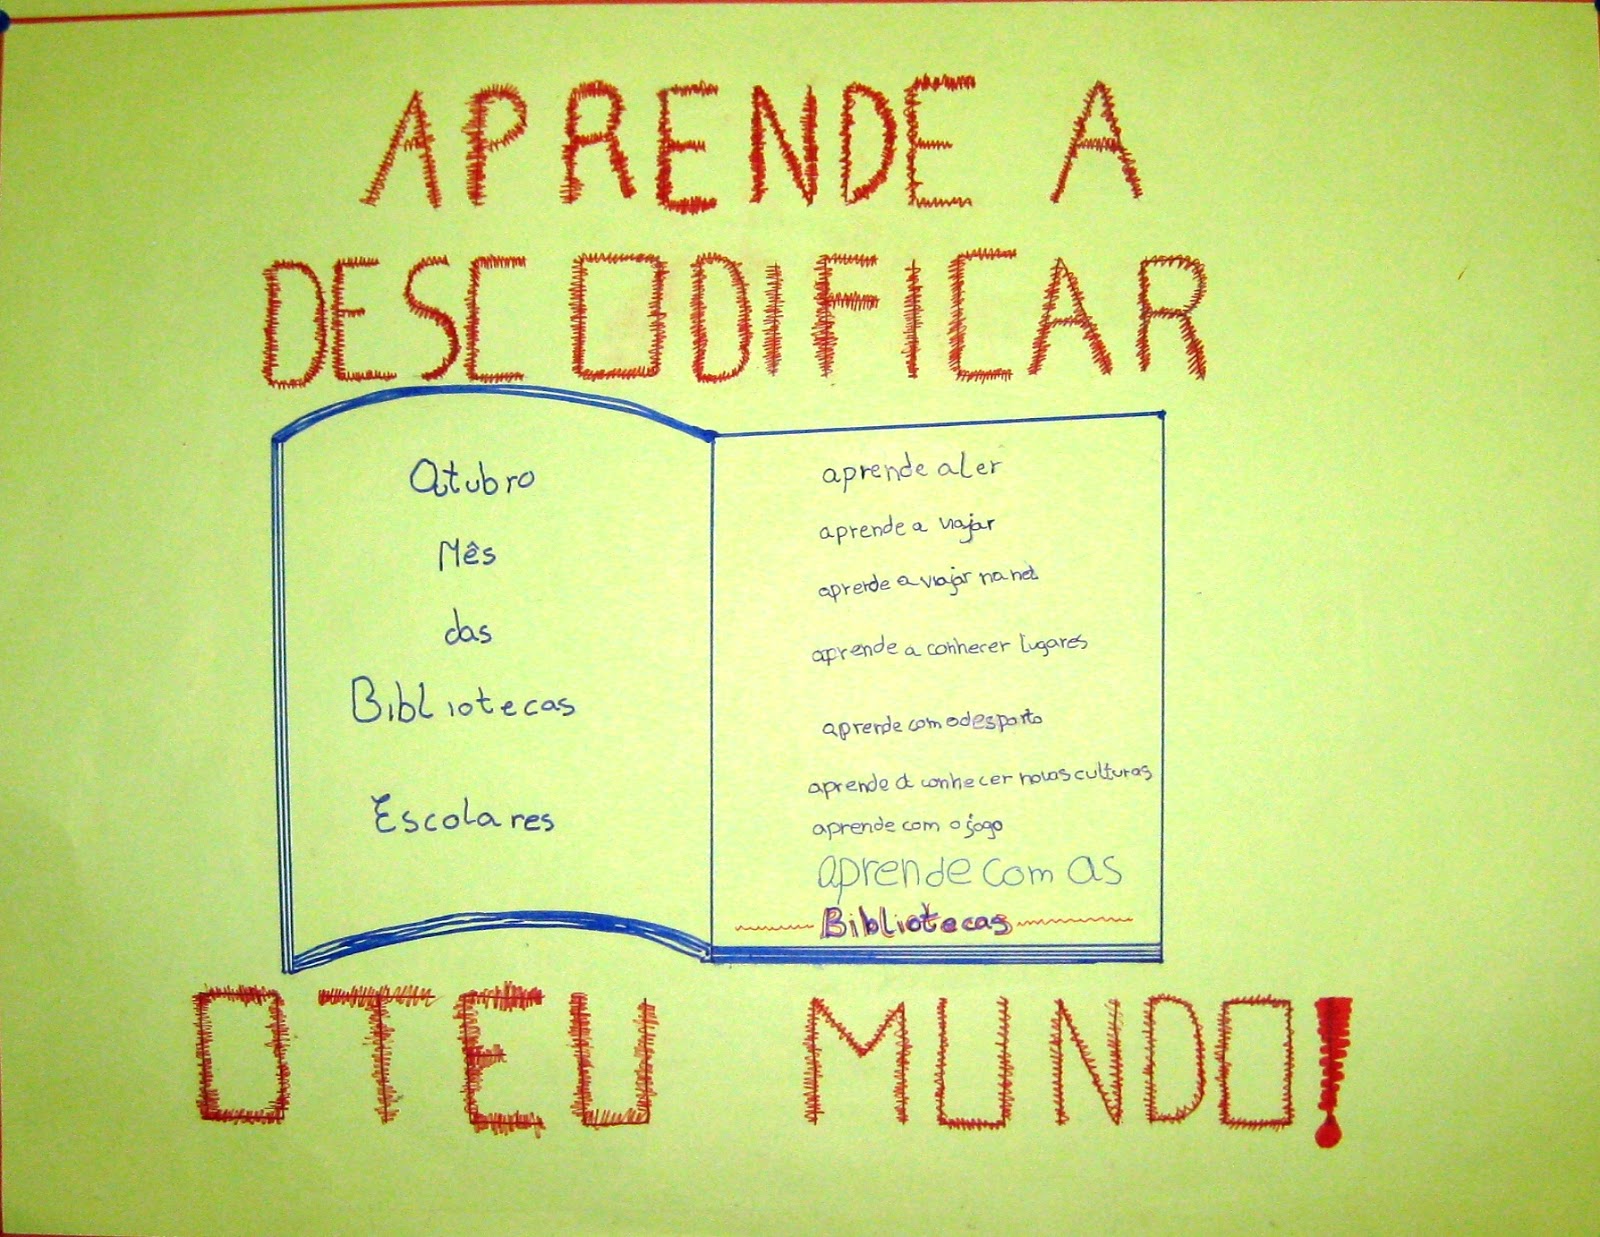 APRENDE A
DESCODIFICAR
Outubro
Mês
das
Bibliotecas
Escolares
aprende a ler
aprende a viajar
aprende a viajar na net
aprende a conhecer lugares
aprende com o desporto
aprende a conhecer novas culturas
aprende com o jogo
aprende com as
Bibliotecas
O TEU MUNDO!